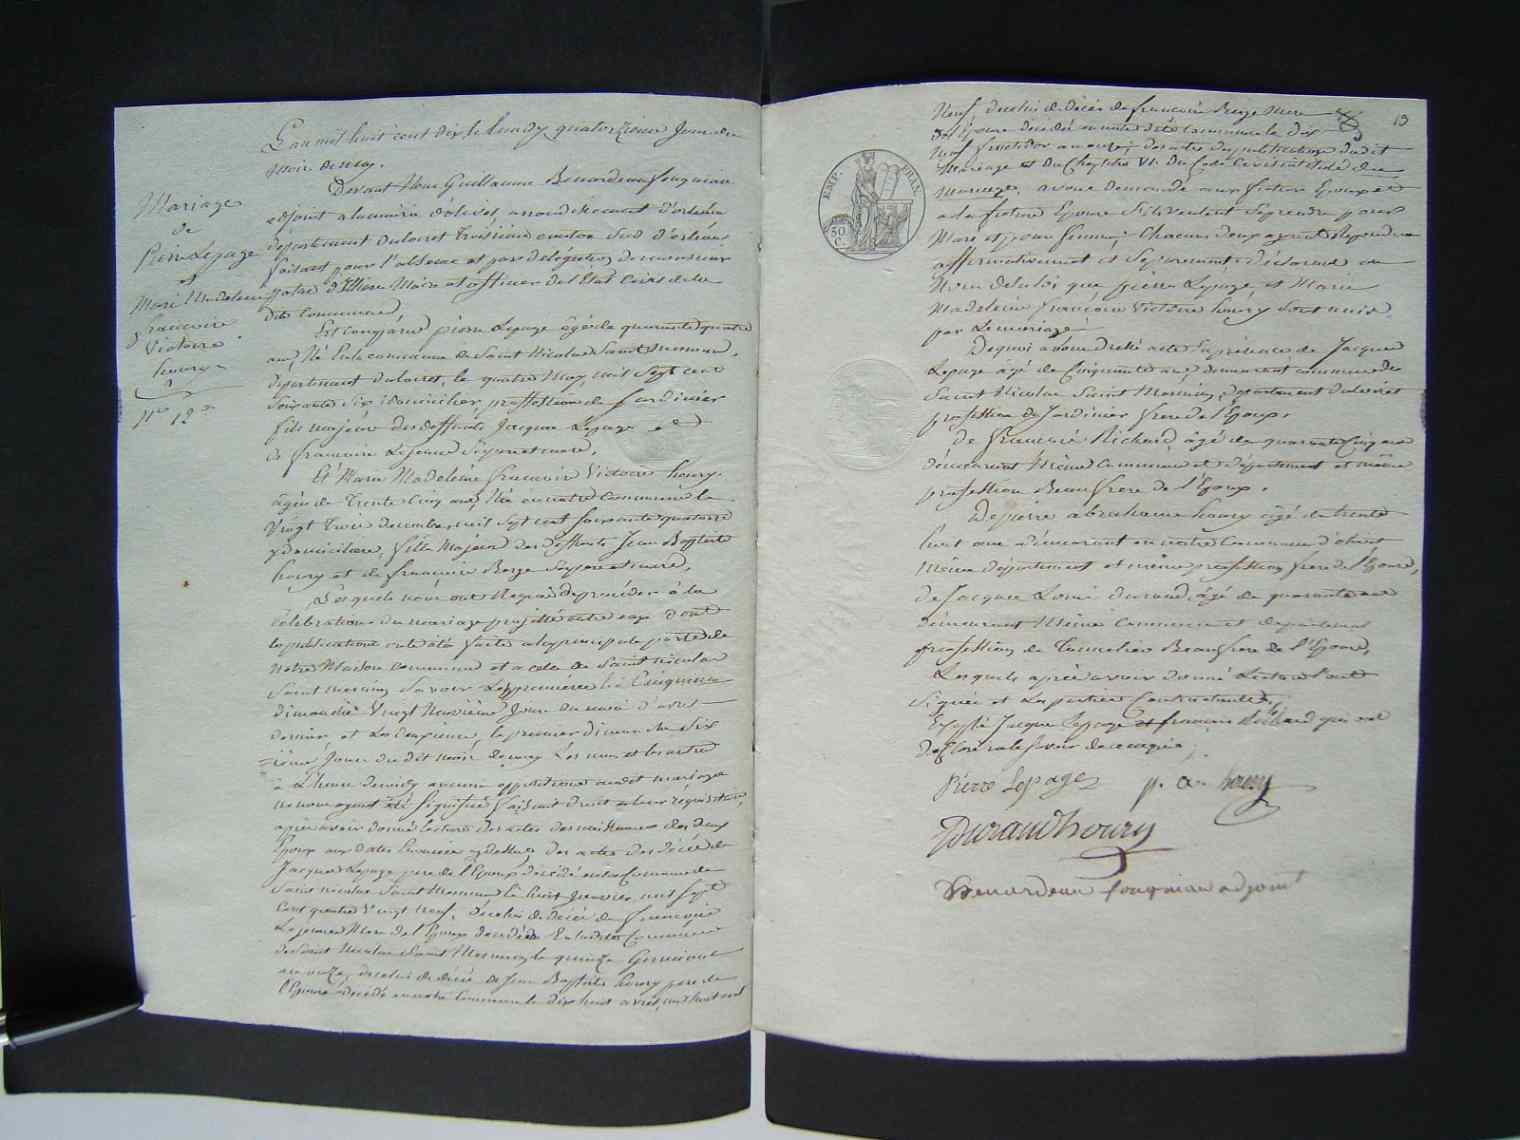 L'an mil huit cent dix le lundy quatorzieme Jour du
mois de may.
Devant Nous Guillaume Benardeau fougniau
adjoint a la mairie d'olivet, arrondissement d'orleans
departement du loiret troisieme canton Sud d'orleans
faisant pour l'absence et par delegation de monsieur
maire et officier de l'Etat Civil de la
dite Commune,
Est comparu pierre Lepage âgé de quarante quatre
ans, Né En la commune de Saint Nicolas Saint Mesmin,
departement du loiret, le quatre may, mil sept cent
soixante six domicilier, proffession de Jardinier
fils majeur des deffunts Jacque Lepage et
de francoise Lejeune Ses pere et mere,
Et Marie Madeleine francoise Victoire houry
âgée de trente cinq ans, Née en notre Commune le
Vingt trois decembre, mil sept cent soixante quatorze
y domiciliée, fille Majeure des deffunts Jean Baptiste
houry et de francoise Berge Ses pere et mere,
Lesquels nous ont Requis de proceder à la
célébration du mariage projetté entre eux dont
les publications ont été faites a la principale porte de
notre Maison Commune et a celle de Saint nicolas
Saint mesmin Savoir La premiere le
dimanche Vingt Neuvieme Jour du mois d'avril
dernier et La deuxieme, le premier dimanche Six
ieme Jour du dit mois de may Les uns et les autres
à L'heure de midy aucune opposition au dit mariage
ne nous ayant été Signifiée faisant droit a leur requisition,
après avoir donné lecture des actes de naissances des deux
Epoux aux dates Enoncées cy dessus, des actes de décès de
Jacque Lepage pere de l'Epoux décédé en la Commune de
Saint nicolas Saint Mesmin le huit Janvier, mil sept
Cent quatre Vingt neuf, de celui de décès de francoise
Lejeune Mere de l'Epoux decedée En la dite Commune
de Saint Nicolas Saint Mesmin le quinze Germinal
an onze, de celui de décès de Jean Baptiste houry pere de
l'Epouse décédé en notre Commune le dix huit avril, mil huit cent
Mariage
de
Pierre Lepage
et
Marie Madeleine
francoise
Victoire
houry
No 12
13
Neuf, de celui de décès de francoise Berge Mere
de l'Epouse décédée en notre dite Commune le dix
Neuf fructidor an onze; des actes de publications du dit
Mariage et du Chapitre VI. du Code Civil intitulé du
Mariage, avons demandé aux futur Epoux et
a la future Epouse S'ils veulent Se prendre pour
Mari et pour femme; Chacun d'eux ayant Repondu
affirmativement et Separement déclarons au
Nom de la loi que pierre Lepage et Marie
Madeleine francoise Victoire houry Sont unis
par Le mariage
De quoi avons dressé acte En presence de Jacque
Lepage âgé de Cinquante ans, demeurant commune de
Saint Nicolas Saint Mesmin, departement du loiret
proffession de Jardinier frere de l'Epoux.
De francois Richard âgé de quarante Cinq ans
demeurant Même Commune et departement et même
profession Beau frere de l'Epoux.
De pierre abraham houry âgé de trente
huit ans demeurant en notre Commune d'olivet
Même departement et même profession frere de l'Epouse,
de Jacque Louis durand âgé de quarante ans
demeurant Même Commune et departement
profession de Tonnelier Beau frere de l'Epouse,
Lesquels après avoir donné Lecture l'ont
Signée et Les parties Contractantes,
Excepté Jacque Lepage et francois Richard qui ont
declaré ne le Savoir de ce requis.
Pierre Lepage p. a. houry
Durand houry
Benardeau fougniau adjoint
EMP. FRAN.
50 C.